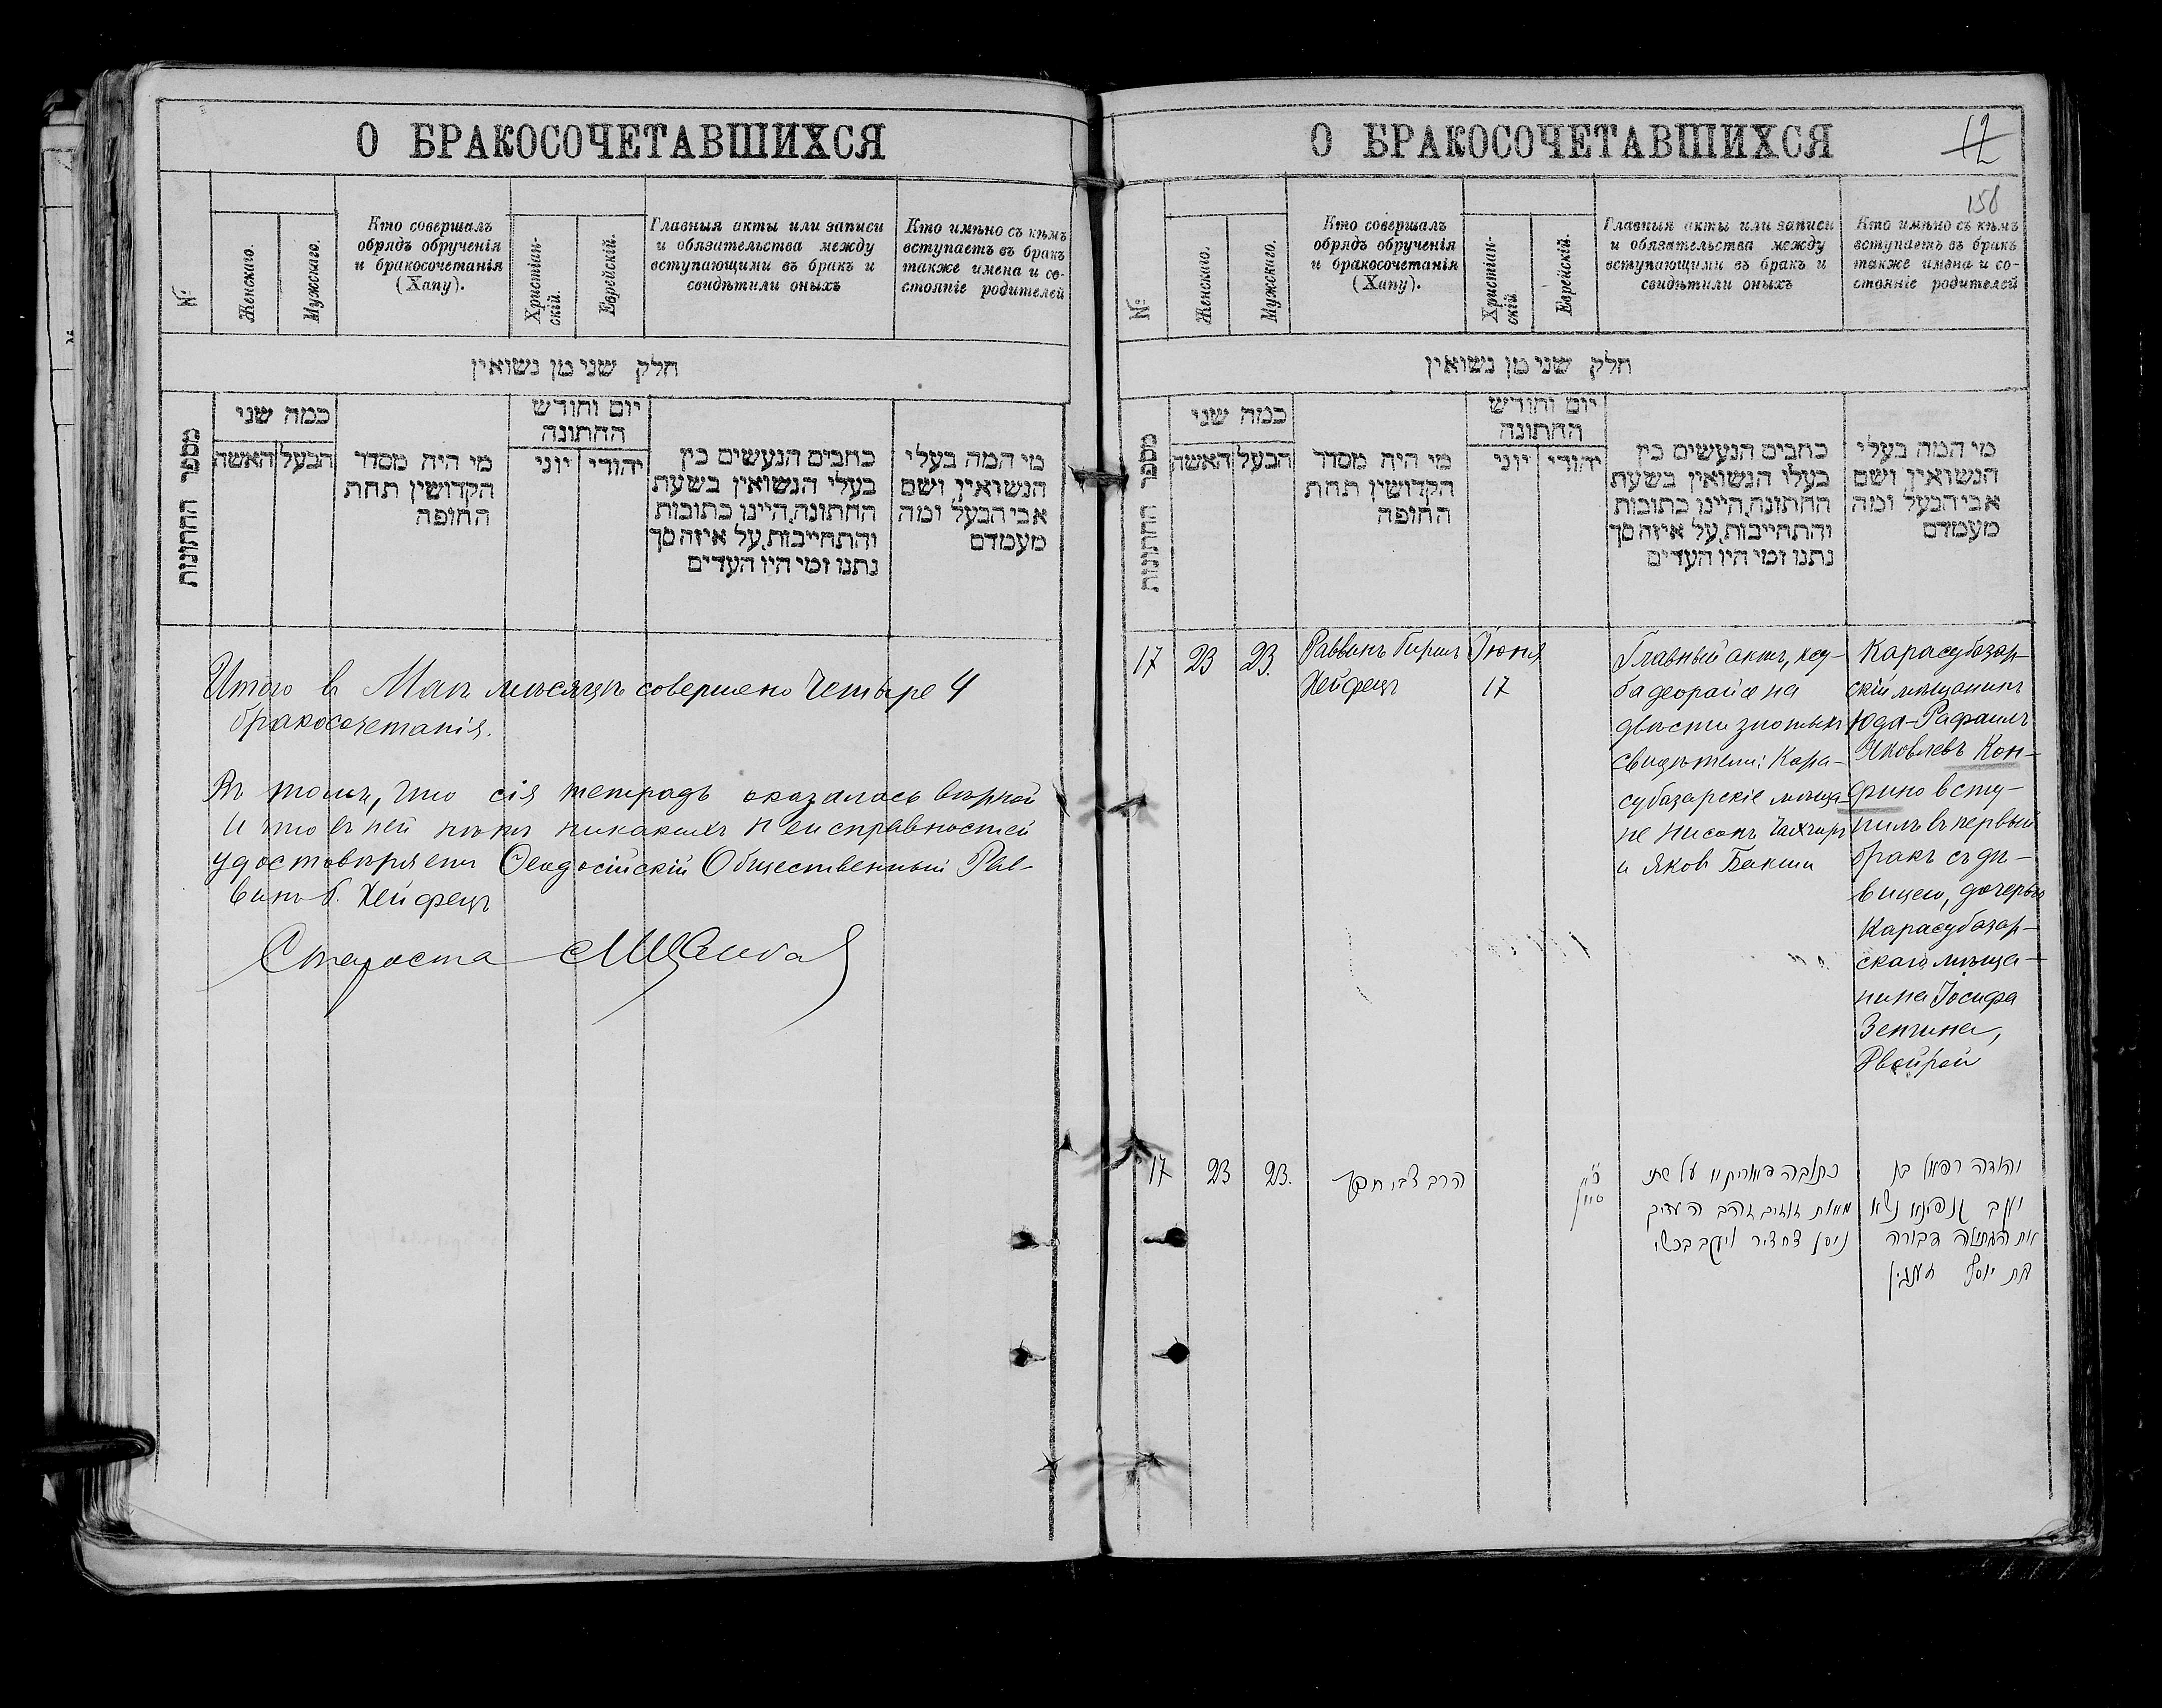 О БРАКОСОЧЕТАВШИХСЯ
№
Женскаго.
Мужскаго.
Кто совершалъ
обрядъ обрученія
и бракосочетанія
(Хапу).
Христіан-
скій.
Еврейскій.
Главныя акты или записи
и обязательства между
вступающими въ бракъ и
свидѣтили оныхъ
Кто имѣно съ кѣмъ
вступаетъ въ бракъ
также имена и со-
стояніе родителей
חלק שני מן נשואין
מספר החתונות
כמה שני
האשה
הבעל
מי היה מסדר
הקדושין תחת
החופה
יום וחודש
החתונה
יוני
יהודי
כתבים הנעשים בין
בעלי הנשואין בשעת
החתונה, היינו כתובות
והתחייבות, על איזה סך
נתנו ומי היו העדים
מי המה בעלי
הנשואין, ושם
אבי הבעל ומה
מעמדם
Итого в Маѣ мѣсяцѣ совершено четыре 4
бракосочетанія.
Въ томъ, что сія тетрадь оказалась вѣрной
и что въ ней нѣтъ никакихъ неисправностей
удостовѣряетъ Ѳеодосійскій Общественный Рав-
винъ Б. Хейфецъ
Староста
О БРАКОСОЧЕТАВШИХСЯ
12
158
№
Женскаго.
Мужскаго.
Кто совершалъ
обрядъ обрученія
и бракосочетанія
(Хапу).
Христіан-
скій
Еврейскій.
Главныя акты или записи
и обязательства между
вступающими въ бракъ и
свидѣтили оныхъ
Кто имѣно съ кѣмъ
вступаетъ въ бракъ
также имена и со-
стояніе родителей
חלק שני מן נשואין
מספר החתונות
כמה שני
האשה
הבעל
מי היה מסדר
הקדושין תחת
החופה
יום וחודש
החתונה
יוני
יהודי
כתבים הנעשים בין
בעלי הנשואין בשעת
החתונה, היינו כתובות
והתחייבות, על איזה סך
נתנו ומי היו העדים
מי המה בעלי
הנשואין, ושם
אבי הבעל ומה
מעמדם
17
23
23.
Раввинъ Гиршъ
Хейфецъ
Іюня
17
Главный актъ, кту-
ба деорайсе на
двѣсти злотыхъ
свидѣтели: Кара-
субазарскіе мѣща-
не Нисонъ Чахчиръ
и Яков Бакши
Карасубазар-
скій мѣщанинъ
Юда-Рафаилъ
Яковлевъ Кон-
фино всту-
пилъ въ первый
бракъ съ дѣ-
вицею, дочерью
Карасубазар-
скаго мѣща-
нина Іосифа
Зенгина,
Двойрой
17
23
23.
הרב צבי חפץ
סיון
כתובה דאוריתא על שתי
מאות זוזים זהב העדים
ניסן צחציר ויעקב בכשי
יהודה רפאל בן
יעקב קנפינא נשא
את הבתולה דבורה
בת יוסף זענגין